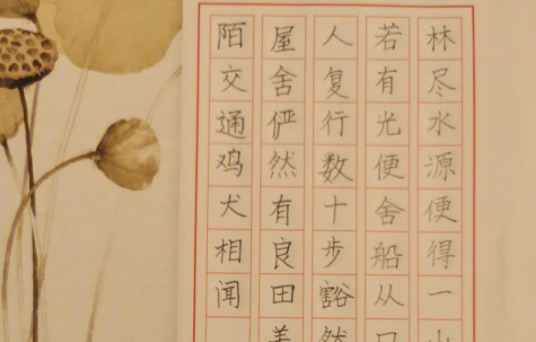 林尽水源便得一山
若有光便舍船从口
人复行数十步豁然
屋舍俨然有良田美
陌交通鸡犬相闻